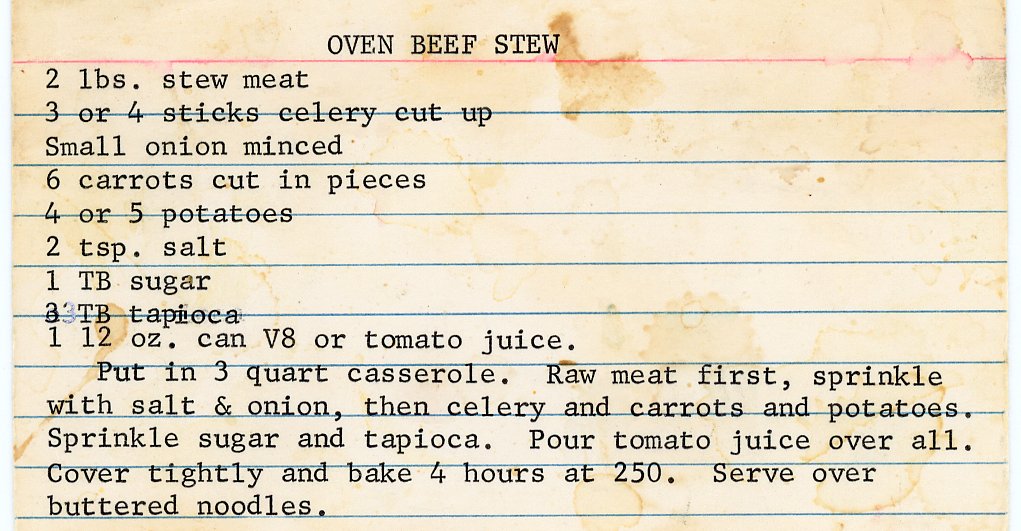 OVEN BEEF STEW
2 lbs. stew meat
3 or 4 sticks celery cut up
Small onion minced
6 carrots cut in pieces
4 or 5 potatoes
2 tsp. salt
1 TB sugar
3 TB tapioca
1 12 oz. can V8 or tomato juice.
Put in 3 quart casserole. Raw meat first, sprinkle
with salt & onion, then celery and carrots and potatoes.
Sprinkle sugar and tapioca. Pour tomato juice over all.
Cover tightly and bake 4 hours at 250. Serve over
buttered noodles.